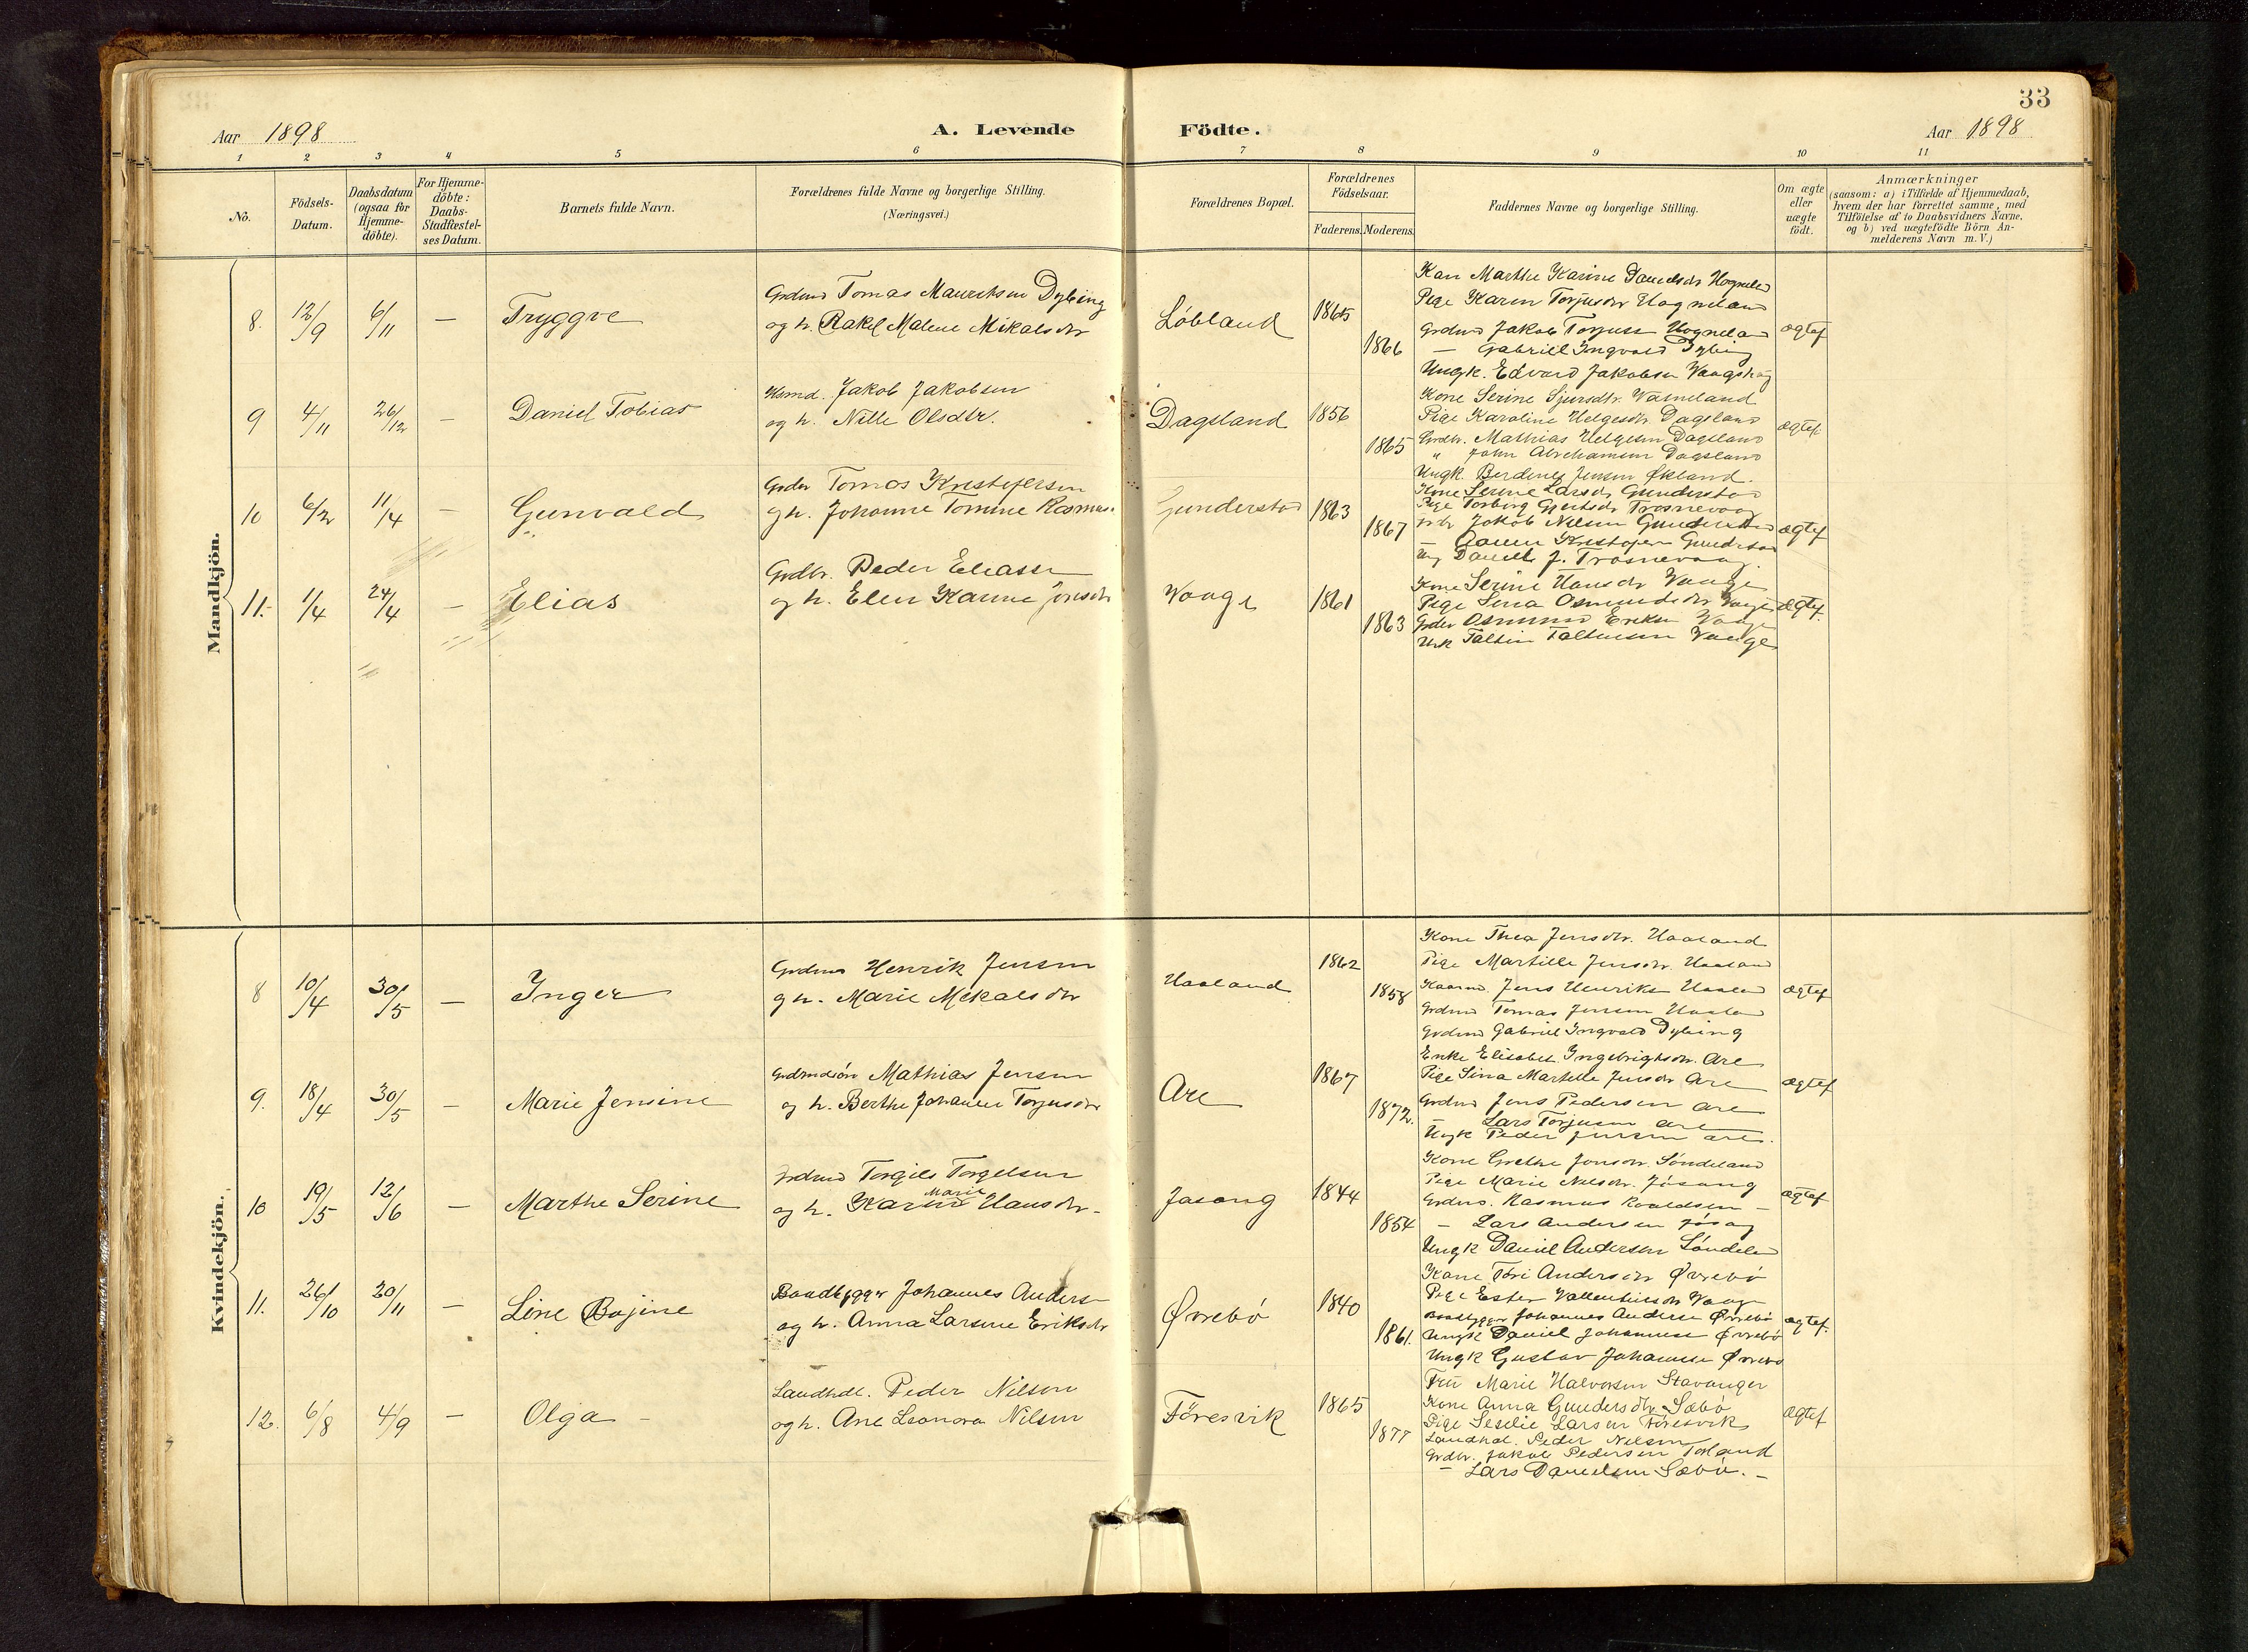 33
Aar 1898
A. Levende Födte.
Aar 1898
1 2 3 4 5 6 7 8 9 10 11
No.
Födsels-Datum.
Daabsdatum (ogsaa for Hjemme-döbte).
For Hjemme-döbte: Daabs-Stadfæstel-ses Datum.
Barnets fulde Navn.
Forældrenes fulde Navne og borgerlige Stilling.
(Næringsvei.)
Forældrenes Bopæl.
Forældrenes Födselsaar.
Faderens. Moderens.
Faddernes Navne og borgerlige Stilling.
Om ægte eller uægte födt.
Anmærkninger
(saasom: a) i Tilfælde af Hjemmedaab,
hvem der har forrettet samme, med
Tilföielse af to Daabsvidners Navne.
og b) ved uægtefödte Börn An-
melderens Navn m.V.)
Mandkjön.
8. 12/9 6/11 — Tryggve
Grdmd Tomas Mauritsen Dybing
og h. Rakel Malene Mikalsdtr
Løbland 1865 1866
Kone Marthe Karine Danielsdtr Hogneland
Pige Karen Torjusdtr Hogneland
Grdmd Jakob Torjuss Hogneland
— Gabriel Ingvald Dybing
Ungk. Edvard Jakobsen Vaagshaug
ægtef
9 4/11 26/12 — Daniel Tobias
Husmd. Jakob Jakobsen
og h. Nille Olsdtr.
Dagsland 1856 1865
Kone Serine Sjursdtr. Vatneland
Pige Karoline Helgesdtr Dagsland
Grdbr. Mathias Helgesen Dagsland
" John Abrahamsen Dagsland
Ungk. Berdines Jensen Økland.
ægtef
10 6/2 11/4 — Gunvald
Grdbr Tomas Kristofersen
og h. Johanne Tomine Rasmus.
Gunderstad 1863 1867
Kone Serine Larsdtr Gunderstad
Pige Torborg Gjertsdtr Trosnevaag
Grdbr Jakob Nilsen Gunderstad
— Kristofersen Gunderstad
Ung Daniel J. Trosnevaag.
ægtef
11. 1/4 24/4 — Elias
Grdbr. Peder Eliassen
og h. Elen Karine Jonsdtr
Vaage 1861 1863
Kone Serine Hansdtr Vaage
Pige Sina Osmundsdtr Vaage
Grdbr Osmund Eriksen Vaage
Unk Faltin Faltinsen Vaage
ægtef.
Kvindekjön.
8 10/4 30/5 — Inger
Grdmd Henrik Jensen
og h. Marie Mikalsdtr
Haaland 1862 1858
Kone Thea Jensdtr. Haaland
Pige Martille Jensdtr. Haaland
Kaarmd. Jens Henriksen Haaland
Grdmd Tomas Jensen Haaland
Grdmd Gabriel Ingvald Dybing
ægtef
9. 18/4 30/5 — Marie Jensine
Grdmdsön Mathias Jensen
og h. Berthe Johanne Torjusdtr
Are 1867 1872.
Enke Elisabet Ingebrigtsdtr. Are
Pige Sina Martille Jensdtr Are
Grdmd Jens Pedersen Are
— Lars Torjusen Are
Ungk Peder Jensen Are.
ægtef
10 19/5 12/6 — Marthe Serine
Grdmd Torgils Torgilsen
og h. Karen Marie Hansdtr.
Jøsang 1844 1854
Kone Grethe Jonsdtr. Søndeland
Pige Marie Nilsdtr. Jøsang
Grdmd. Rasmus Roaldsen —
— Lars Andersen Jøsang
Ungk Daniel Andersen Søndeland
ægtef
11. 26/10 20/11 — Line Bojine
Baadbygger Johannes Andersen
og h. Anna Larsine Eriksdtr
Øvrebö 1840 1861.
Kone Tori Andersdtr Øvrebö
Pige Ester Vallentinsdtr Vaage
Baadbygger Johannes Andersen Øvrebö
Ungk Daniel Johannesen Øvrebö
Ungk Gustav Johannesen Øvrebö
ægtef.
12. 6/8 4/9 — Olga —
Landhdl. Peder Nilson
og h. Ane Leonora Nilsen
Föresvik 1865 1877
Fru Marie Halvorsen Stavanger
Kone Anna Gundersdtr Sæbö
Pige Seselie Larsen Föresvik
Landhdl. Peder Nilsen
Grdbr. Jakob Pedersen Torland
— Lars Danielsen Sæbö. —
ægtef